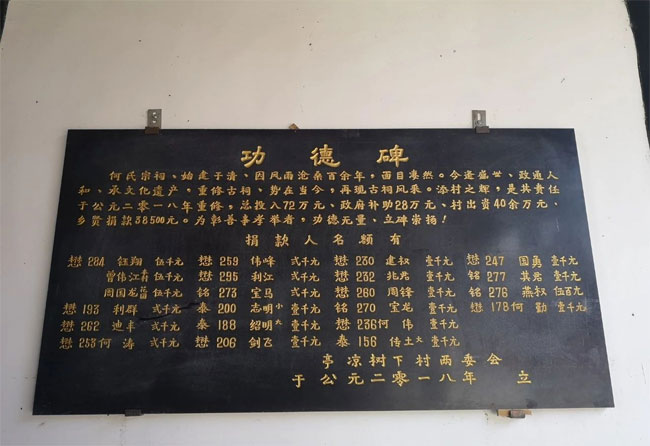 功德碑
何氏宗祠、始建于清、因风雨沧桑百余年，面目凄然。今逢盛世、政通人
和、承文化遗产，重修古祠、势在当今，再现古祠风采。添村之辉，是其责任
于公元二零一八年重修，总投入72万元、政府补助28万元、村出资40余万元、
乡贤捐款38500元。为彰善事孝举者，功德无量、立碑崇扬！
捐款人名额有
懋284 钰翔 伍千元 懋259 伟峰 弍千元 懋230 建权 壹千元 懋247 国勇 壹千元
曾伟江 伍千元 懋295 利江 弍千元 懋232 兆弟 壹千元 铭277 其君 壹千元
周国龙 伍千元 铭273 宝马 弍千元 懋260 周锋 壹千元 铭276 燕权 伍百元
懋193 利群 弍千元 泰200 志明小 壹千元 铭270 宝龙 壹千元 懋178何 勤 壹千元
懋262 迪丰 弍千元 泰188 绍明大 壹千元 懋236何 伟 壹千元
懋253何 涛 弍千元 懋206 剑飞 壹千元 泰156 传土大 壹千元
亭凉树下村两委会
于公元二零一八年 立